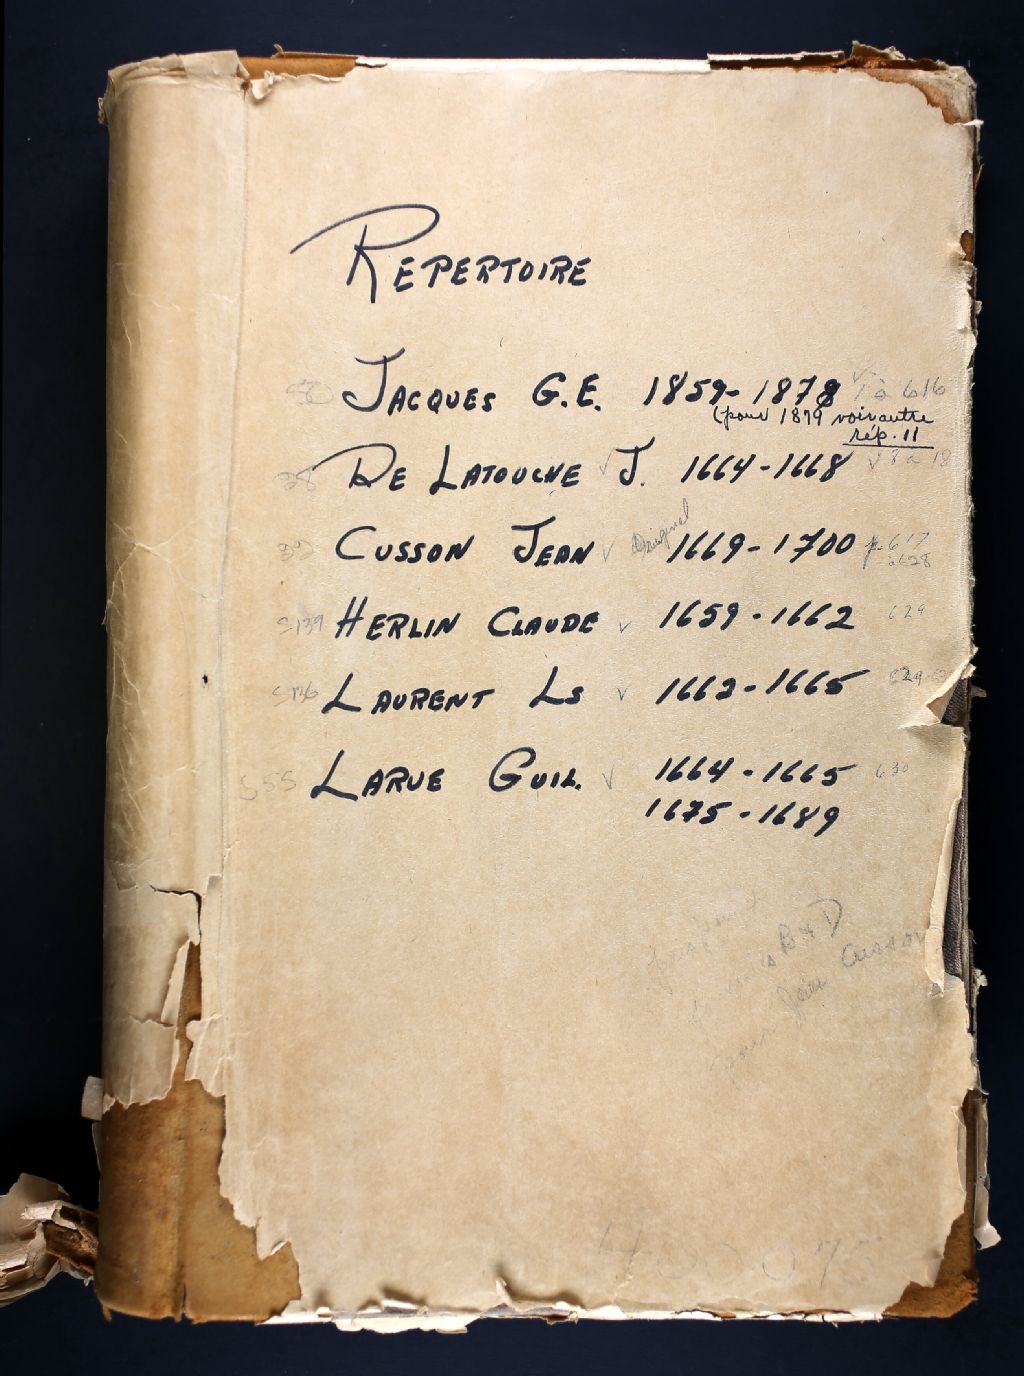 REPERTOIRE
JACQUES G.E. 1859-1878 1 à 616
(pour 1879 voir autre
rép. 11
DE LATOUCHE J. 1664-1668 8 à 18
CUSSON JEAN Original 1669-1700 p. 617
à 628
HERLIN CLAUDE 1659-1662 629
LAURENT LS 1662-1665
LARUE GUIL. 1664-1665 630
1675-1689
B & D
Jean Cusson